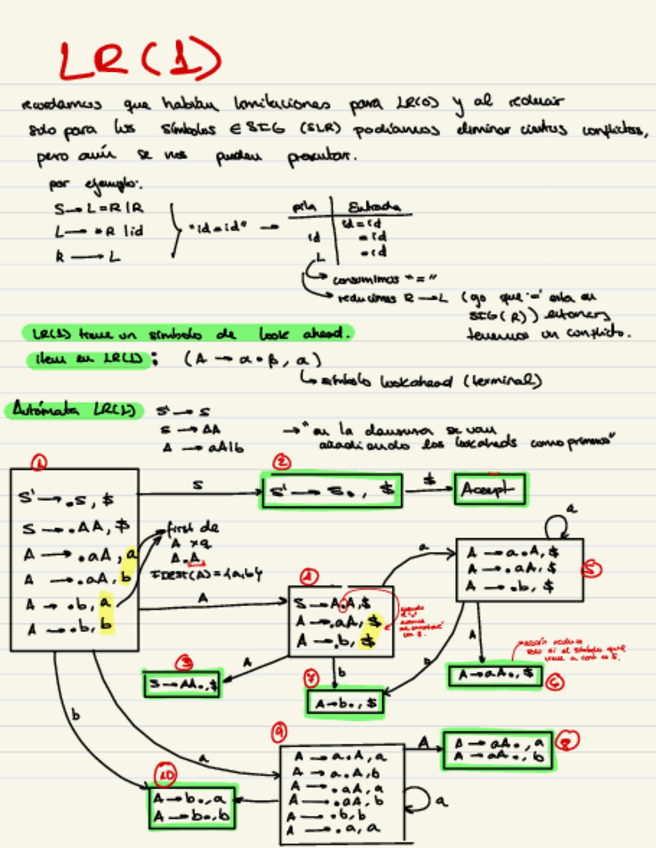 LR(1)
recordamos que habían limitaciones para LR(0) y al reducir
solo para los símbolos ∈ SIG (SLR) podíamos eliminar ciertos conflictos,
pero aún se nos pueden presentar.
por ejemplo:
S → L=R | R
L → *R | id
R → L
"id=id" →
pila | Entrada
id=id
id | =id
L | =id
consumimos "="
reducimos R → L (ya que '=' esta en
SIG(R)) entonces
tenemos un conflicto.
LR(1) tiene un símbolo de look ahead.
item en LR(1): (A → α•β, a)
símbolo lookahead (terminal)
Autómata LR(1)
S' → S
S → AA
A → aA|b
→ "en la clausura se van
añadiendo los lookaheads como primeros"
1
S' → .S, $
S → .AA, $
A → .aA, a
A → .aA, b
A → .b, a
A → .b, b
first de
A.A,
S
2
S' → S., $
$
Accept
A
4
S → A.A, $
A → .aA, $
A → .b, $
a
5
A → a.A, $
A → .aA, $
A → .b, $
a
A
3
S → AA., $
b
7
A → b., $
b
A
6
A → aA., $
b
a
9
A → a.A, a
A → a.A, b
A → .aA, a
A → .aA, b
A → .b, b
A → .a, a
a
A
8
A → aA., a
A → aA., b
10
A → b., a
A → b., b